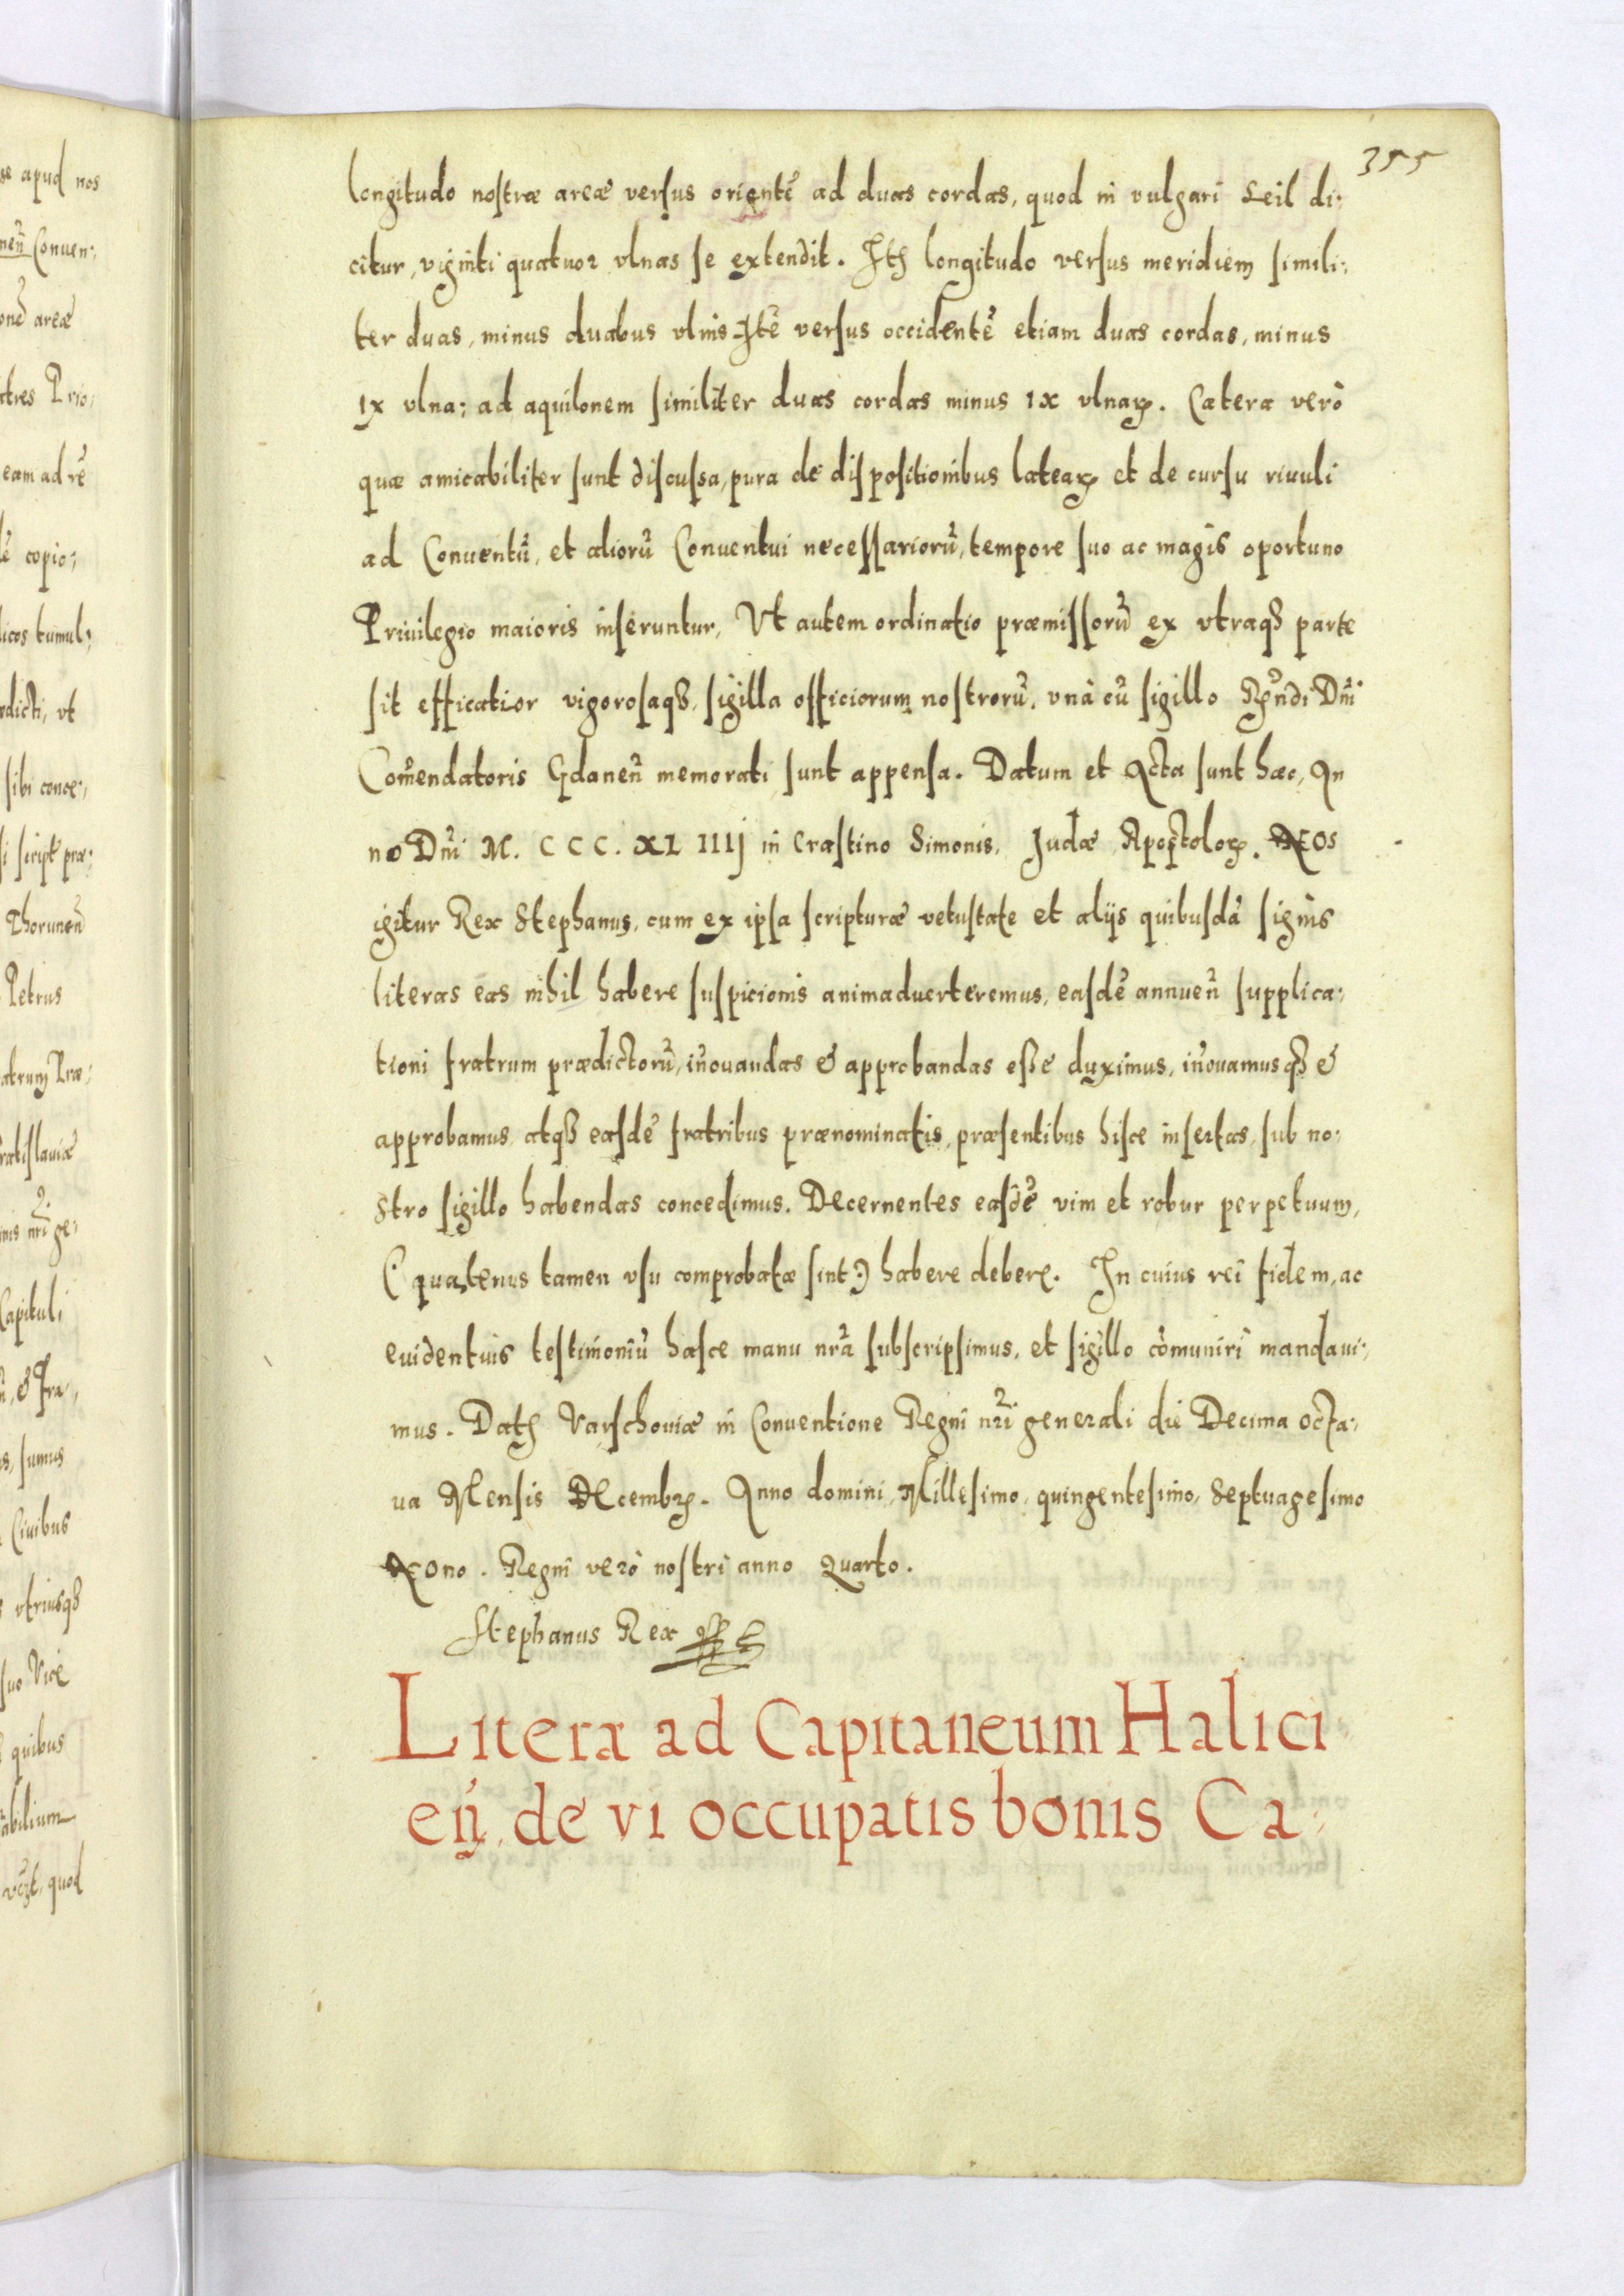 355
longitudo nostræ areæ versus orientē ad duas cordas, quod in vulgari Seil di:
citur, viginti quatuor vlnas se extendit. Itē longitudo versus meridiem simili:
ter duas, minus duabus vlnis Itē versus occidentē etiam duas cordas, minus
IX vlna: ad aquilonem similiter duas cordas minus IX vlnaꝝ. Cætera verò
quæ amicabiliter sunt discussa, pura de dispositionibus lateaꝝ et de cursu riuuli
ad Conuentū, et aliorū Conuentui necessariorū, tempore suo ac magis oportuno
Priuilegio maioris inseruntur, Vt autem ordinatio præmissorū ex vtraqꝫ parte
sit efficatior vigorosaqꝫ, sigilla officiorum nostrorū, vnà cū sigillo Rṇdi Dn̄i
Com̄endatoris Gdanen̄ memorati sunt appensa. Datum et Acta sunt hæc, An
no Dn̄i M. CCC. XL IIIJ in Crastino Simonis, Judæ Apostoloꝝ. Nos
igitur Rex Stephanus, cum ex ipsa scripturæ vetustate et alijs quibusdā signis
literas eas nihil habere suspicionis animaduerteremus, easdē annuen̄ supplica:
tioni fratrum prædictorū, in̄ouandas & approbandas eße duximus, in̄ouamusqꝫ &
approbamus atqꝫ easdē fratribus prænominatis, præsentibus hisce insertas, sub no:
stro sigillo habendas concedimus. Decernentes easdē vim et robur perpetuum,
(: quatenus tamen vsu comprobatæ sint :) habere debere. In cuius rei fidem, ac
euidentius testimoniū hasce manu nr̄a subscripsimus, et sigillo cōmuniri mandaui:
mus. Datꝫ Varschouiæ in Conuentione Regni nr̄i generali die Decima octa:
ua Mensis Decembꝝ. Anno domini, Millesimo, quingentesimo, Septuagesimo
Nono. Regni verò nostri anno Quarto.
Stephanus Rex
Litera ad Capitaneum Halici
en̄, de vi occupatis bonis Ca: